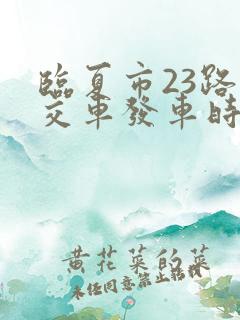 臨夏市23路
交車發車時
黄花菜的菜
未经同意禁止转载